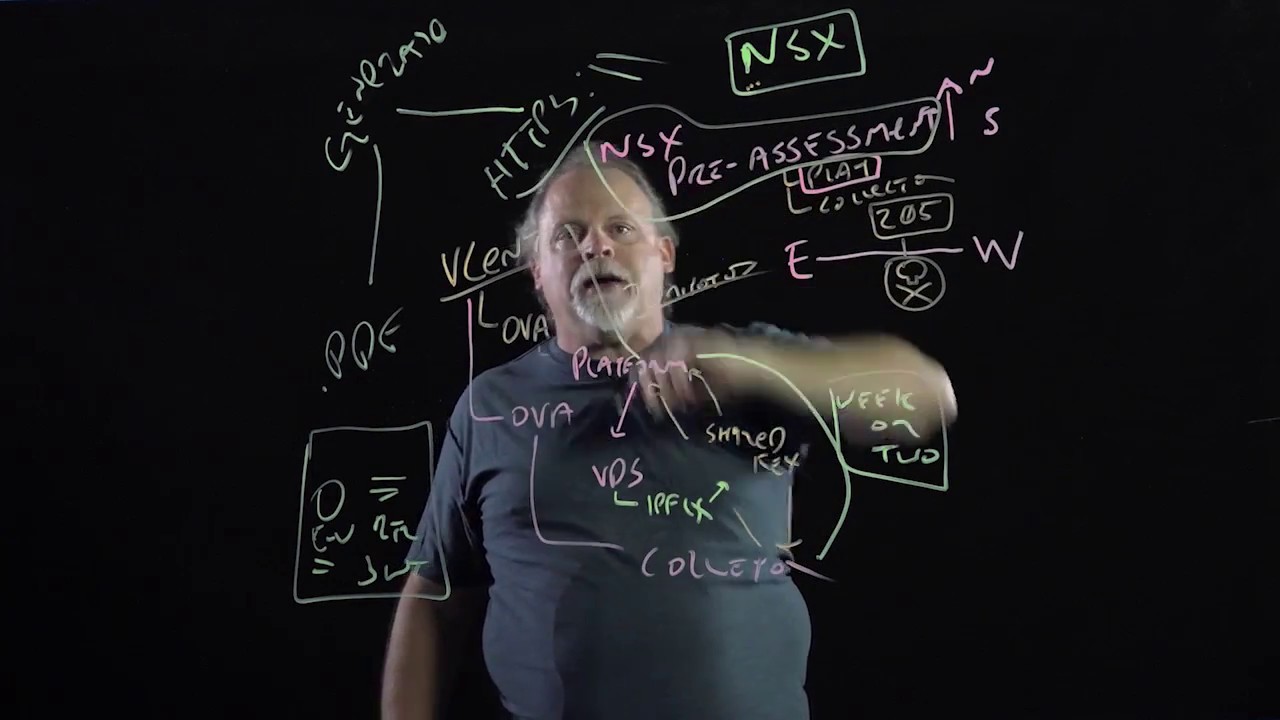 NSX
HTTPS:
NSX
PRE-ASSESSMENT
N
S
PLAT
205
E
W
VCEN
OVA
.PDF
PLATFORM
OVA
SHARED
KEY
VDS
IPFIX
WEEK
OR
TWO
E-W